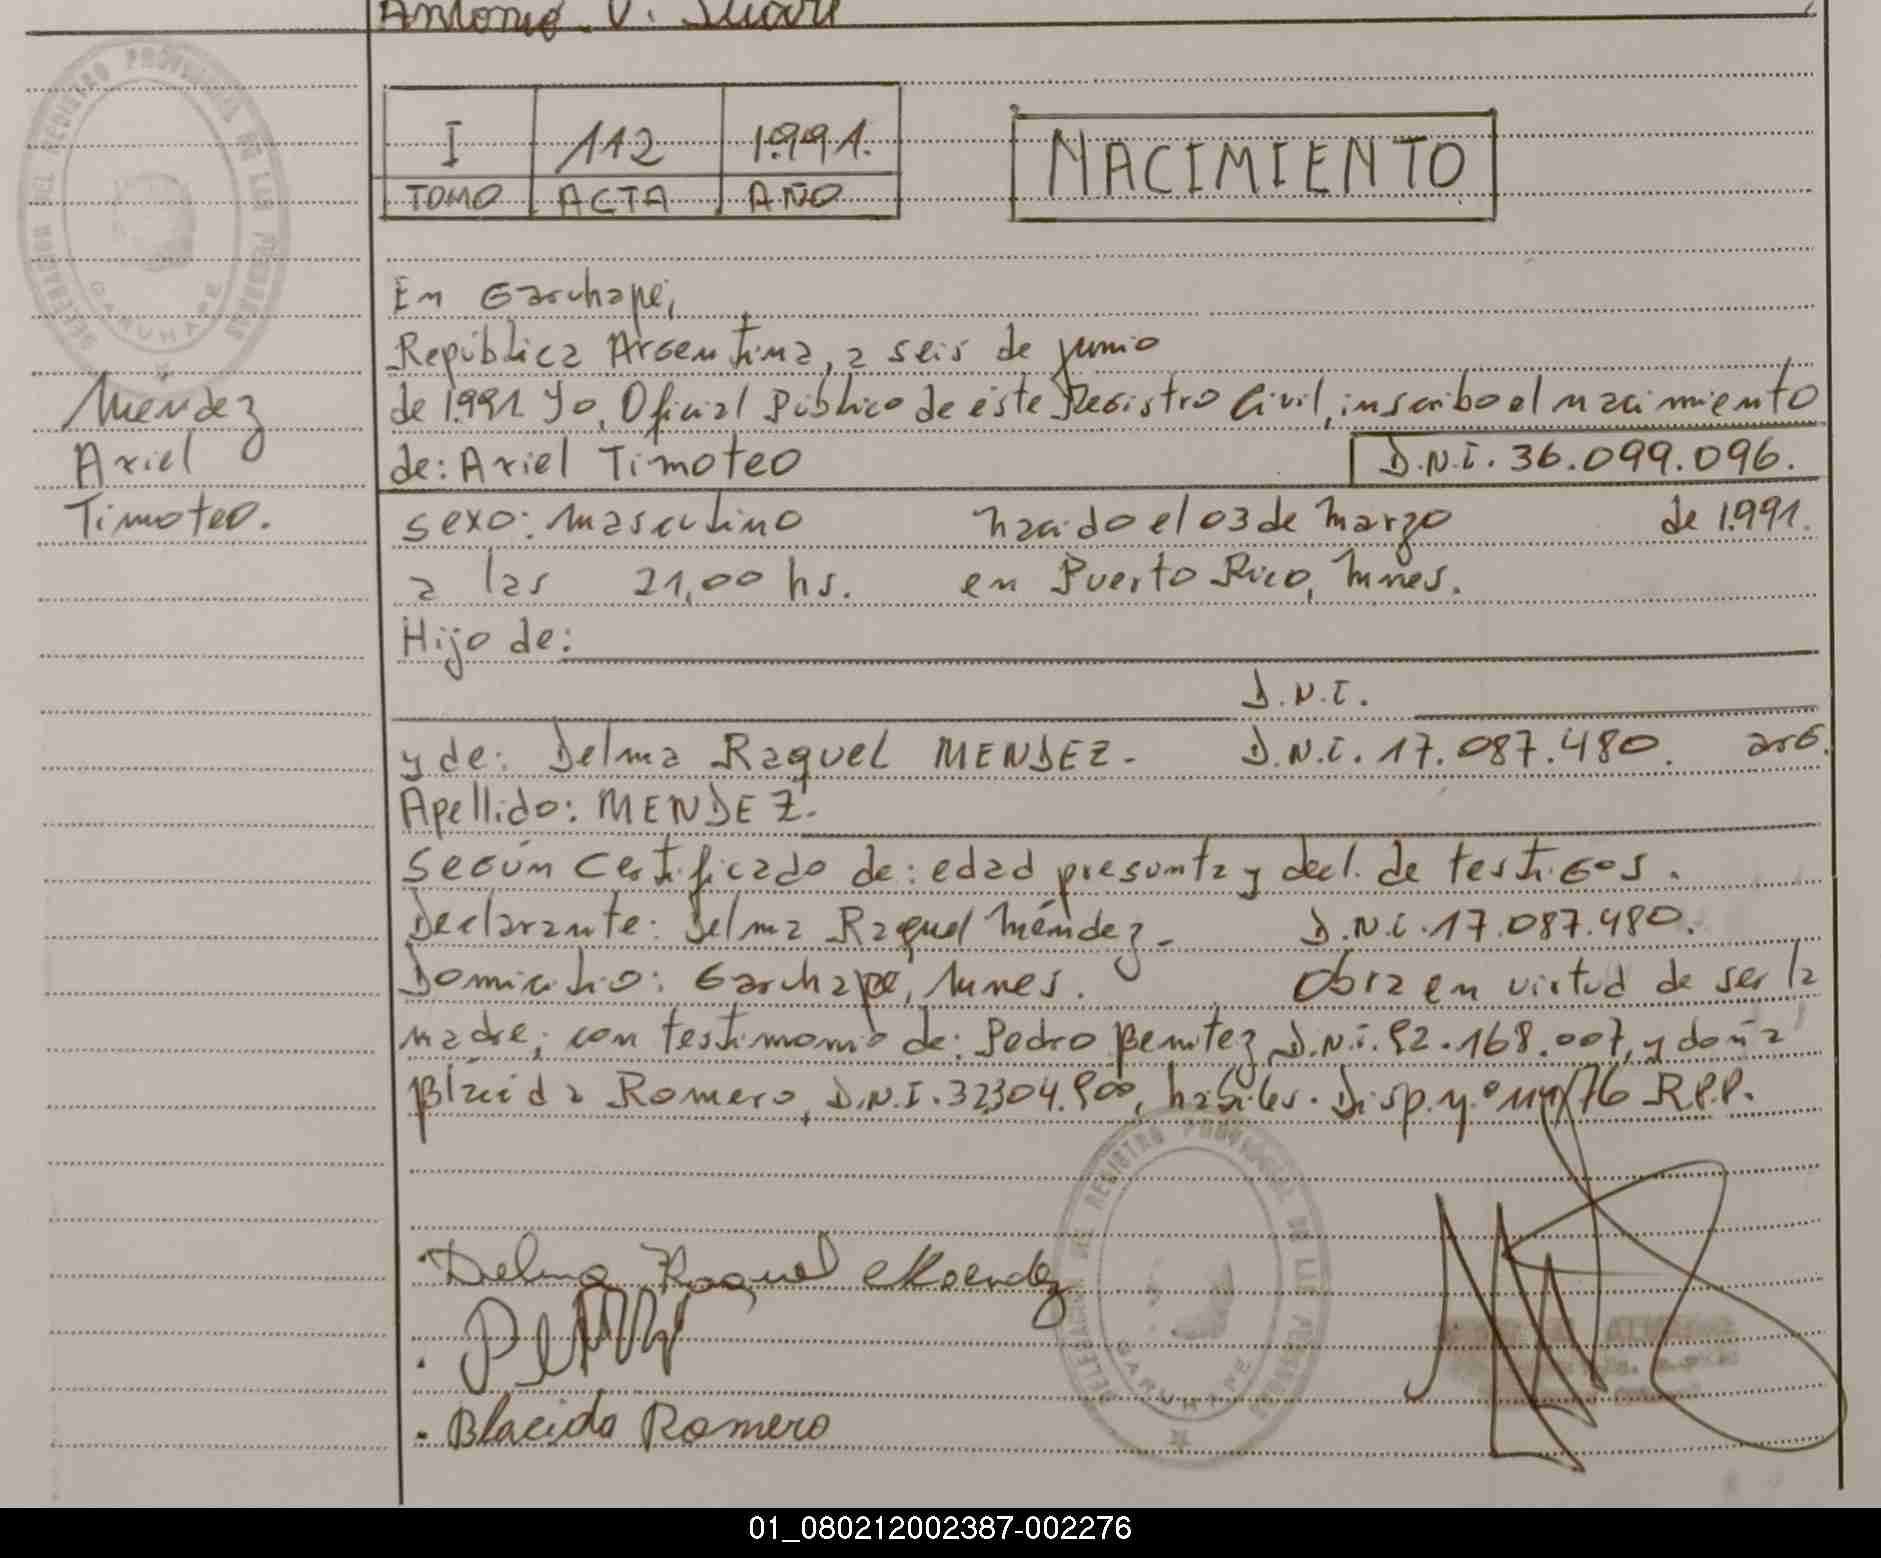 Antonio. V.
I 112 1.991.
TOMO ACTA AÑO
NACIMIENTO
En Garuhape,
República Argentina, a seis de junio
de 1.991 Yo, Oficial Público de éste Registro Civil, inscribo el nacimiento
de: Ariel Timoteo D.N.I. 36.099.096.
Méndez
Ariel
Timoteo.
sexo: masculino nacido el 03 de marzo de 1.991.
a las 21,00 hs. en Puerto Rico, Mnes.
Hijo de:
D.N.I.
y de: Delma Raquel MENDEZ. D.N.I. 17.087.480. arg.
Apellido: MENDEZ.
Según Certificado de: edad presunta y decl. de testigos.
Declarante: Delma Raquel Méndez. D.N.I. 17.087.480.
Domicilio: Garuhapé, Mnes. Obra en virtud de ser la
madre; con testimonio de: Pedro Benitez D.N.I. 92.168.007, y doña
Blácida Romero, D.N.I. 32304.900, hábiles. Disp. n.º /76 R.P.P.
Delma Raquel Mendez
Blacida Romero
DELEGACION DEL REGISTRO PROVINCIAL DE LAS PERSONAS
GARUHAPE
DELEGACION DEL REGISTRO PROVINCIAL DE LAS PERSONAS
GARUHAPE
01_080212002387-002276